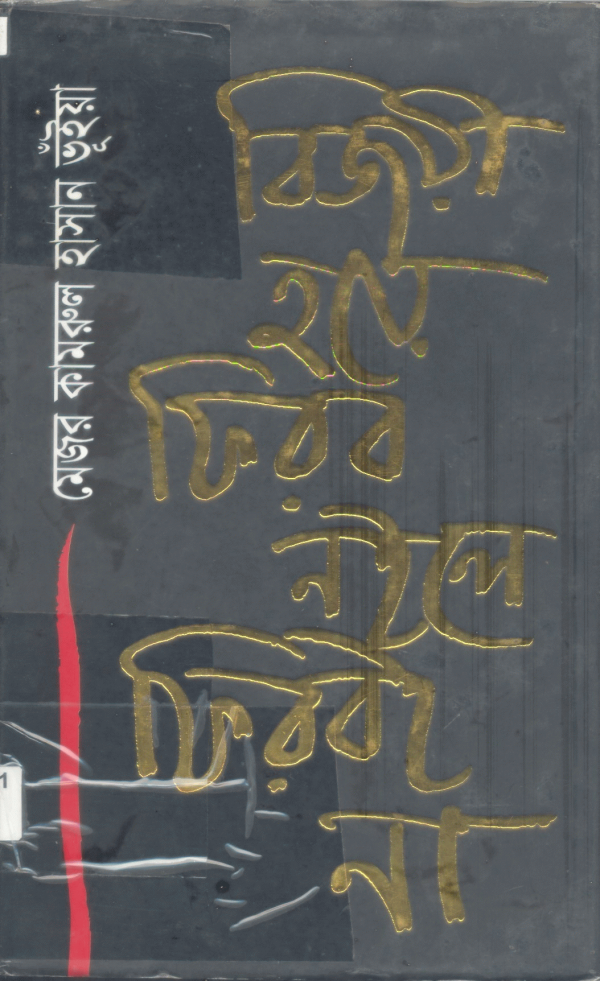 বিজয়ী
হয়ে
ফিরব
নইলে
ফিরবই
না
মেজর কামরুল হাসান ভূঁইয়া
1